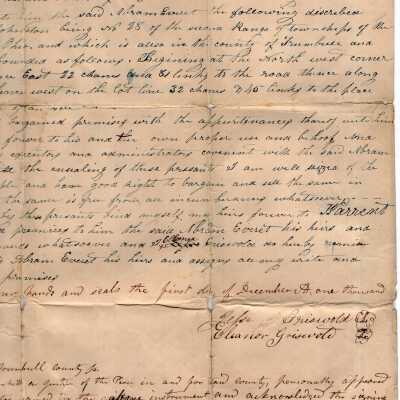 to him the said Abram Everit the following discribed
Johnston being No 25 of the second Range of townships of the
Ohio and which is also in the county of Trumbull and
bounded as follows Begining at the North west corner
East 22 chains and 81 links to the road thence along
west on the Lot line 32 chains & 45 links to the place
bargained premises with the appurtenances thereof unto him
forever to his and their own proper use and behoof And
executors and administrators covenant with the said Abram
the ensealing of these presents I am well seized of the
and have good right to bargain and sell the same in
the same is free from all incumbrances whatsoever
by these presents bind myself my heirs forever to Warrent
premises to him the said Abram Everit his heirs and
whatsoever and Elenor Griswold do hereby remise
Abram Everit his heirs and assigns all my write and
premises
hands and seals the first day of December AD one thousand
Griswold
Eleanor Griswold
Trumbull county ss
of the Peace in and for said county, personally appeared
named in the above instrument and acknowledged the signing